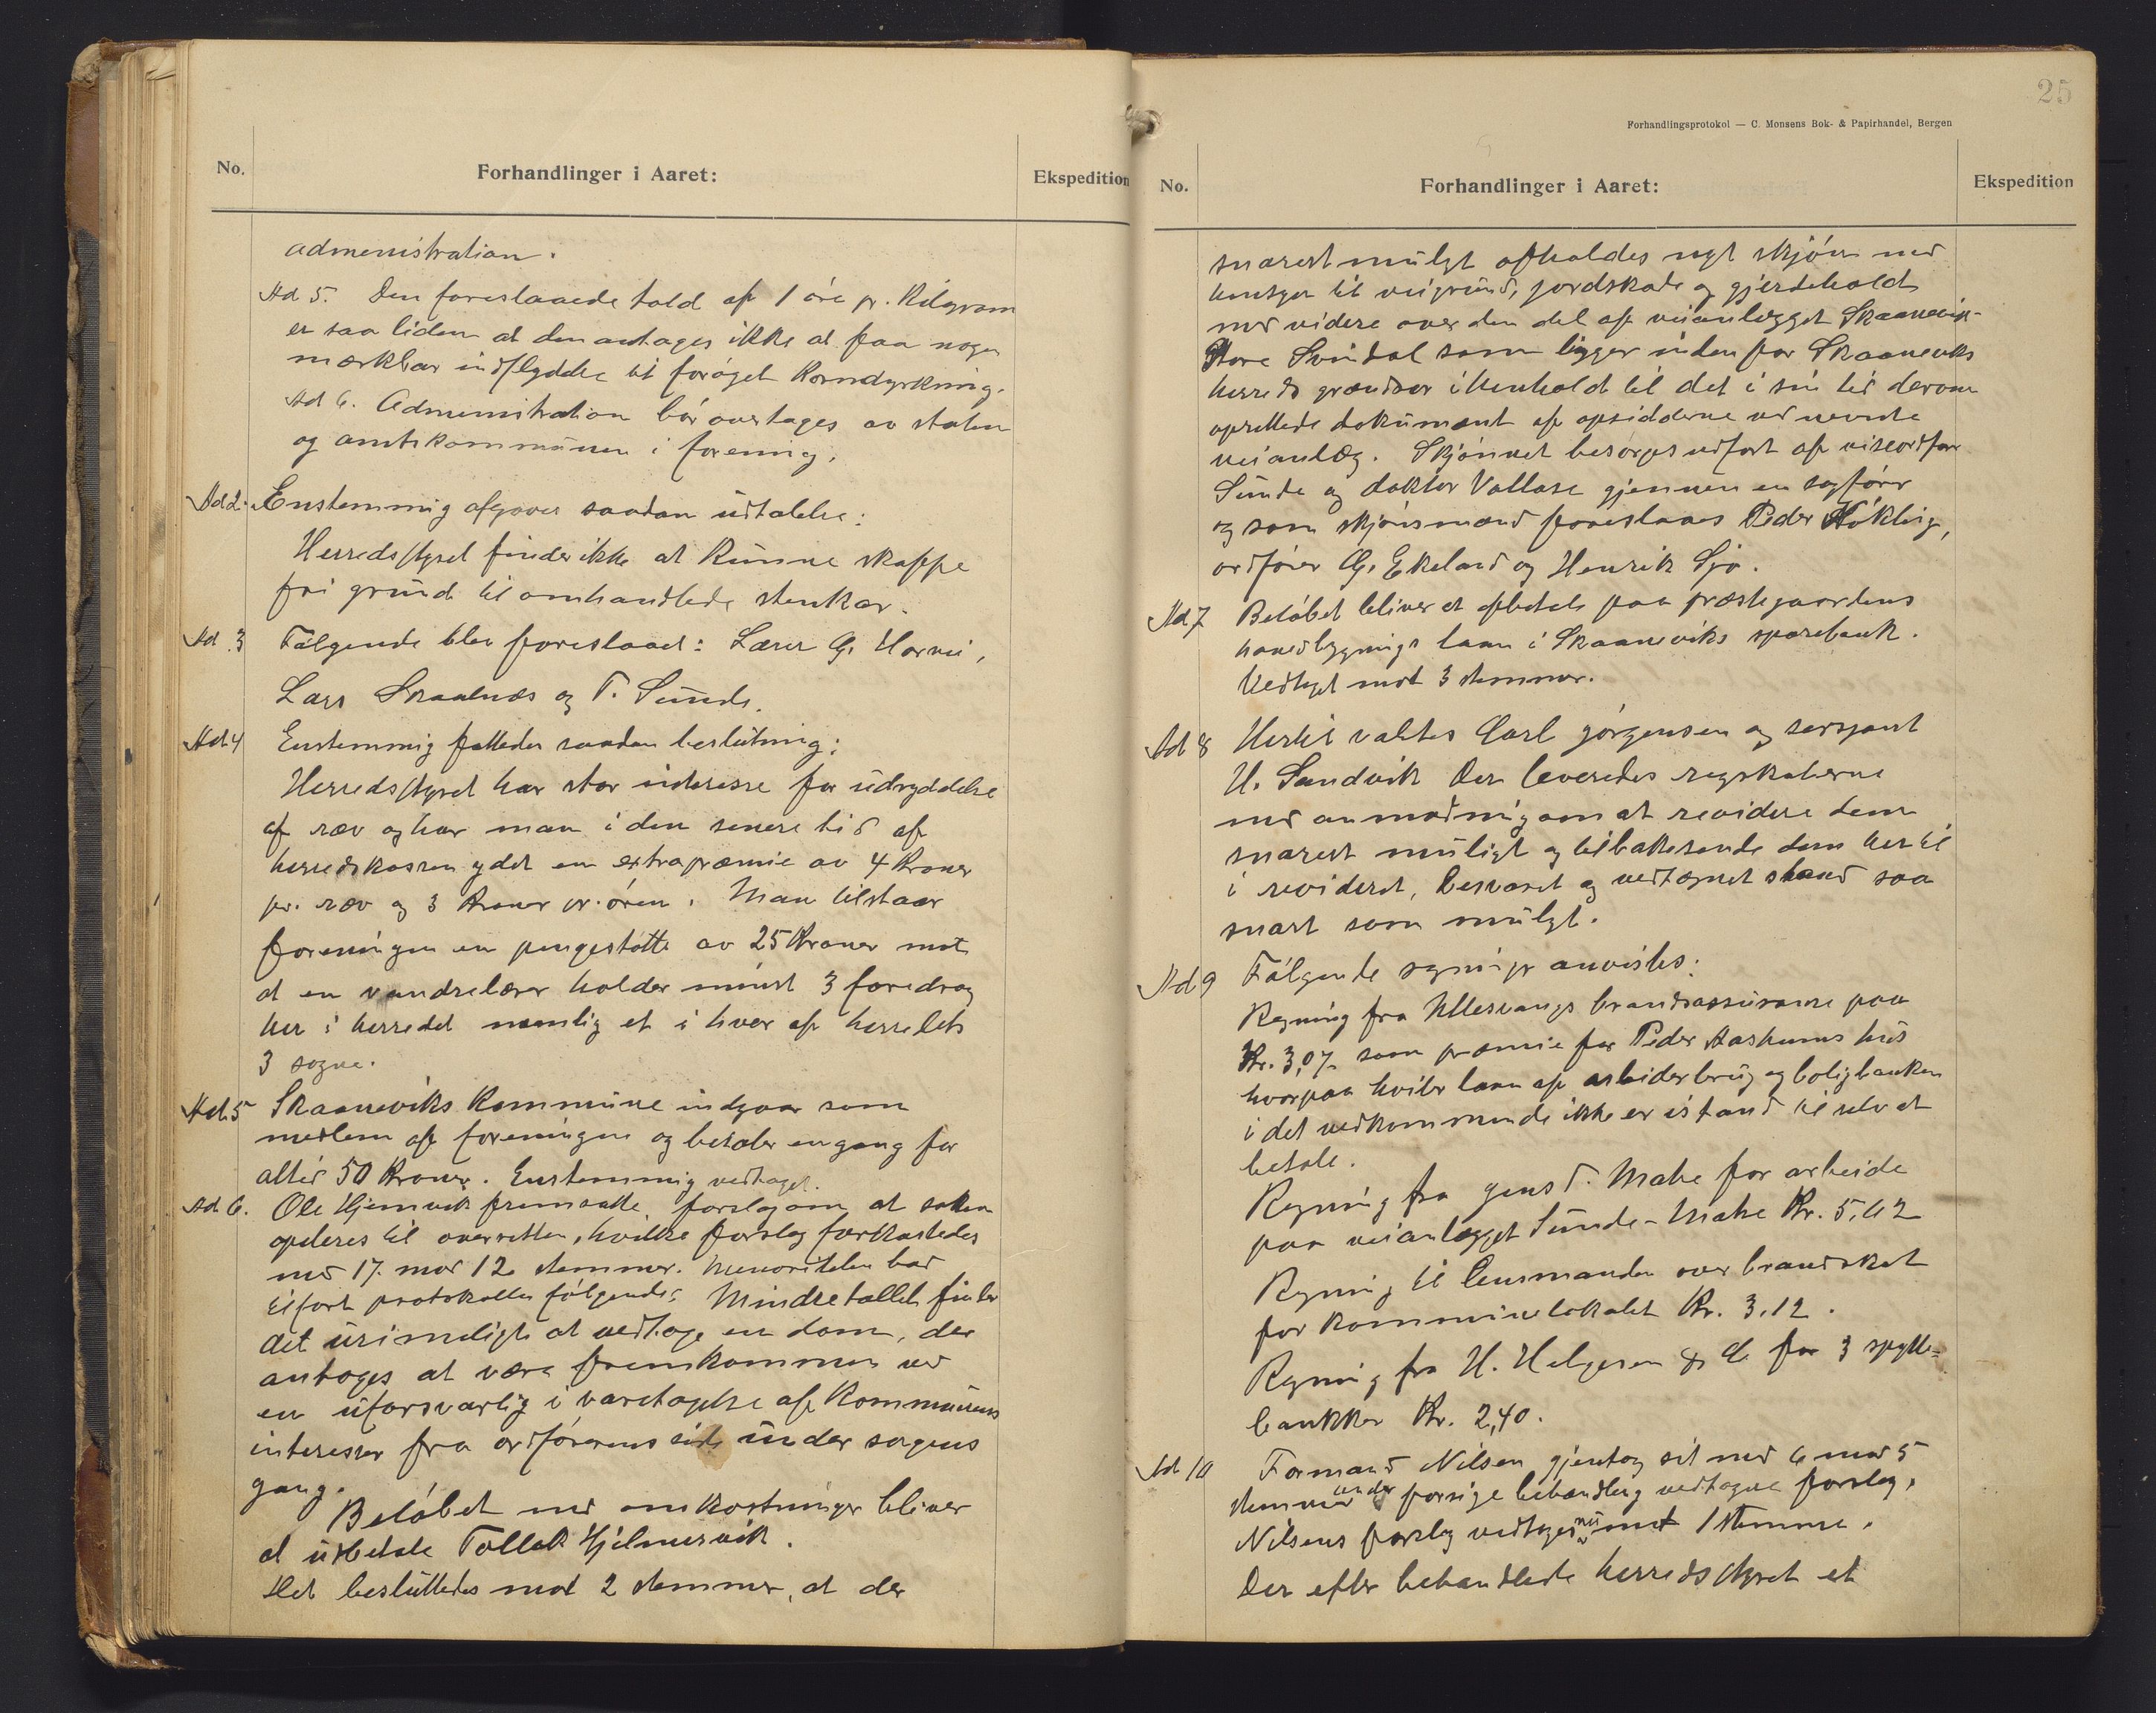 No.
Forhandlinger i Aaret:
Ekspedition
administration.
Ad 5. Den foreslaaede told af 1 öre pr. Kilogram
er saa liden at den antages ikke at faa nogen
mærkbar indflydelse til foröget Korndyrkning.
Ad 6. Administration bör overtages av staten
og amtskommunen i forening.
Ad 2. Enstemmig afgaves saadan udtalelse:
Herredsstyret finder ikke at kunne skaffe
fri grund til omhandlede stenkar.
Ad. 3 Fölgende blev foreslaaet: Lærer G. Harvei,
Lars Skaalnæs og T. Sunde.
Ad 4 Enstemmig fattedes saadan beslutning:
Herredsstyret har stor interesse for udryddelse
af ræv og har man i den senere tid af
herredskassen ydet en extrapræmie av 4 Kroner
pr. ræv og 3 Kroner pr. örn. Man tilstaar
foreningen en pengestötte av 25 Kroner mot
at en vandrelærer holder minst 3 foredrag
her i herredet nemlig et i hver af herredets
3 sogne.
Ad. 5 Skaaneviks Kommune indgaar som
medlem af foreningen og betaler engang for
altid 50 Kroner. Enstemmig vedtaget.
Ad 6. Ole Hjemvik fremsatte forslag om at saken
apeleres til overretten, hvilke forslag forkastedes
med 17. mod 12 stemmer. Menoriteten bad
tilfört protokollen fölgende: Mindretallet finder
det urimeligt at vedtage en dom, der
antages at være fremkommen ved
en uforsvarlig i varetagelse af Kommunens
interesser fra ordförerens side under sagens
gang.
Belöbet med omkostninger bliver
at udbetale Tollak Hjelmervik.
Det besluttedes mot 2 stemmer, at der
25
Forhandlingsprotokol — C. Monsens Bok- & Papirhandel, Bergen
No.
Forhandlinger i Aaret:
Ekspedition
snarest muligt afholdes nyt skjön med
hensyn til veigrund, jordskade og gjerdehold
med videre over den del af veianlægget Skaanevik-
Store Svindal som ligger inden for Skaaneviks
herreds grændser i henhold til det i sin tid derom
oprettede dokument af opsidderne ved nevnte
veianlæg. Skjönnet besörges udfört af viseordförer
Sunde og doktor Vallase gjennem en sagförer
og som skjönsmænd foreslaaes Peder Kökling,
ordförer G. Ekeland og Henrik Sjo.
Ad 7 Belöbet bliver at afbetale paa præstegaardens
hovedbygnings laan i Skaaneviks sparebank.
Vedtaget mot 3 stemmer.
Ad 8 Hertil valtes Carl Jörgensen og sersjant
H. Sandvik Der leveredes regnskaberne
med anmodning om at revidere dem
snarest muligt og tilbakesende dem hertil
i revideret, besvaret og vedtegnet stand saa
snart som muligt.
Ad 9 Fölgende regninger anvistes:
Regning fra Ullesvangs brandassurance paa
Kr. 3,07 som præmie for Peder Aashums hus
hvorpaa hviler laan af arbeiderbrug og boligbanken
i det vedkommende ikke er istand til selv at
betale.
Regning fra gensd. Mahe for arbeide
paa veianlægget Sunde - Mahe Kr. 5,62
Regning til lensmanden over brandskat
for kommunelokalet Kr. 3,12.
Regning fra H. Helgesen & C. for 3 spytte-
bankker Kr. 2,40.
Ad 10 Formand Nilsen gjentog sit med 6 mod 5
stemmer under forrige behandling vedtagne forslag.
Nilsens forslag vedtages nu mot 1 stemme.
Der efter behandlede herredsstyret et